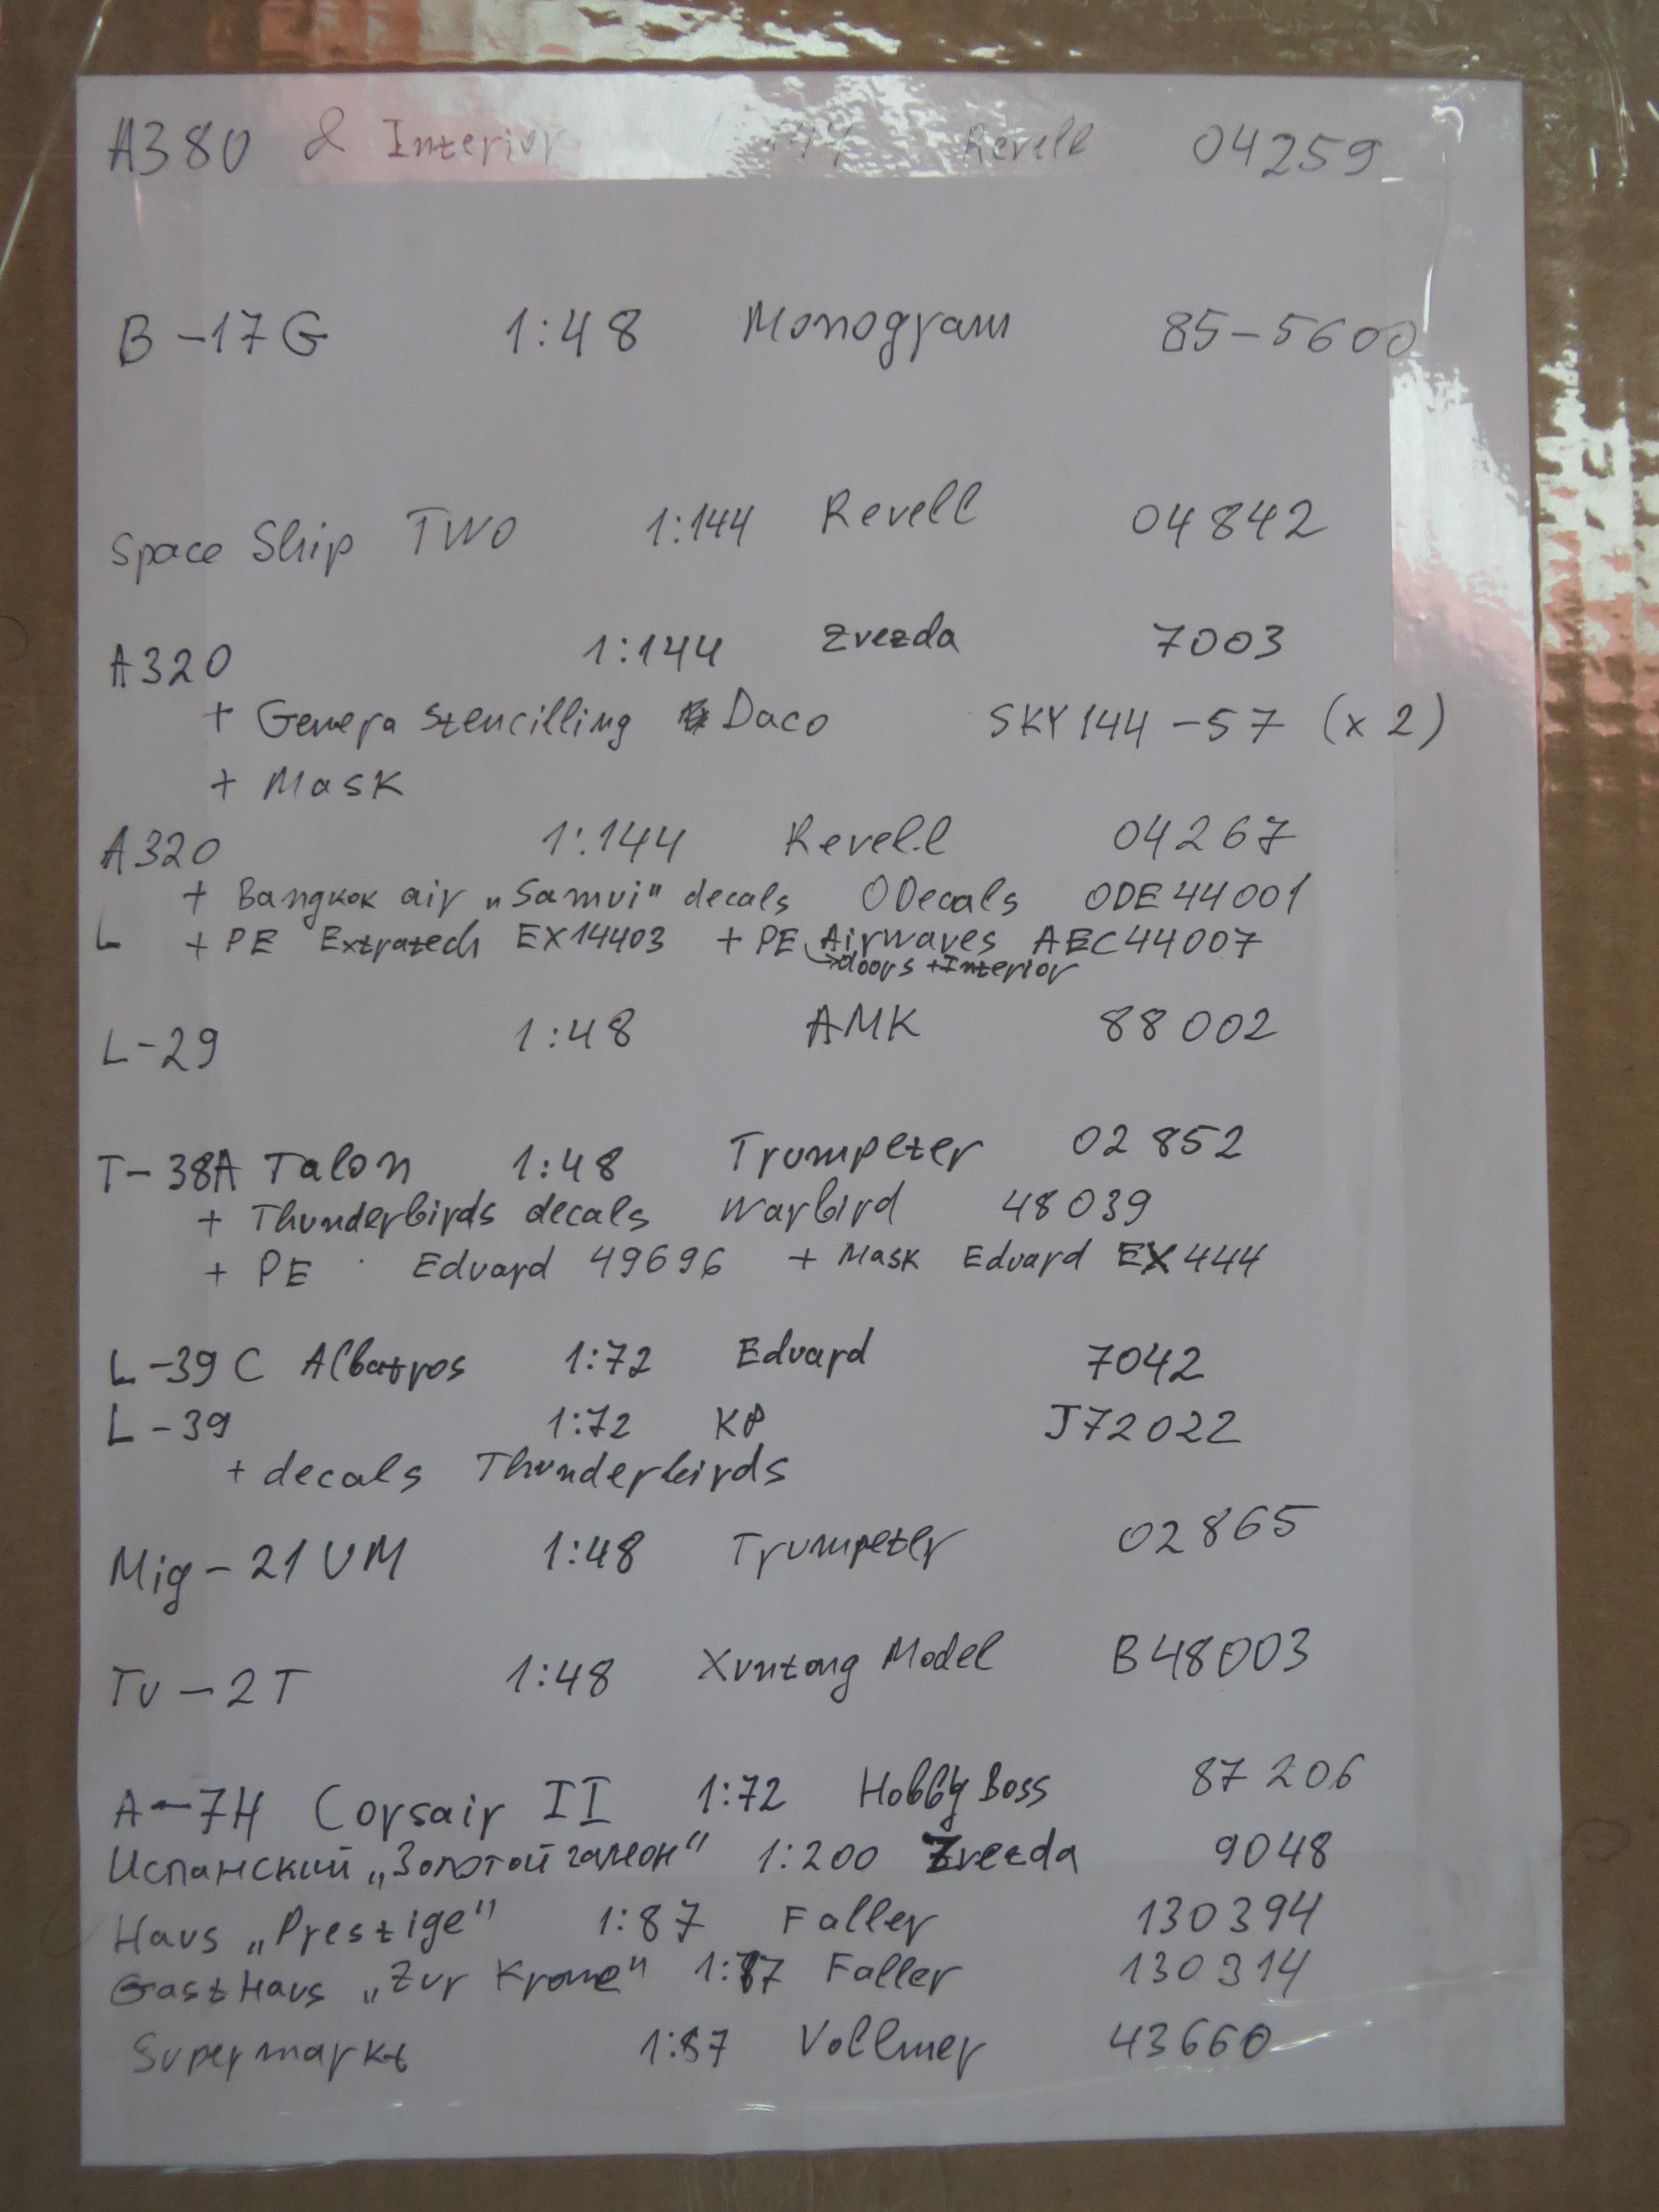 A380 & Interior 144 Revell 04259
B-17G 1:48 Monogram 85-5600
Space Ship TWO 1:144 Revell 04842
A320 1:144 Zvezda 7003
+ Genera stencilling Daco SKY144-57 (x2)
+ Mask
A320 1:144 Revell 04267
+ Bangkok air „Samui" decals 0Decals ODE44001
L + PE Extratech EX14403 + PE Airwaves AEC44007
→doors + Interior
L-29 1:48 AMK 88002
T-38A Talon 1:48 Trumpeter 02852
+ Thunderbirds decals Warbird 48039
+ PE Eduard 49696 + Mask Eduard EX444
L-39C Albatros 1:72 Eduard 7042
L-39 1:72 KP J72022
+ decals Thunderbirds
Mig-21UM 1:48 Trumpeter 02865
Tu-2T 1:48 Xuntong Model B48003
A-7H Corsair II 1:72 Hobby Boss 87206
Испанский „Золотой галеон" 1:200 Zvezda 9048
Haus „Prestige" 1:87 Faller 130394
GastHaus „Zur Krone" 1:87 Faller 130314
Supermarkt 1:87 Vollmer 43660